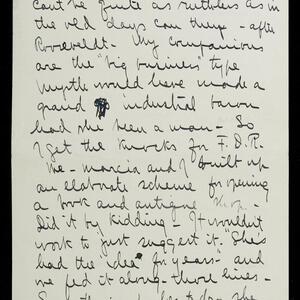 can't be quite as ruthless as in
the old days can they - after
Roosevelt. My companions
are the "big business" type
Myrtle would have made a
grand industrial baron
had she been a man - So
I get the knocks for F.D.R.
We - Marcia and I built up
an elaborate scheme for opening
a book and antique shop.
Did it by kidding - It wouldn't
work to just suggest it. "She's
had the idea for years - and
we fed it along those lines -